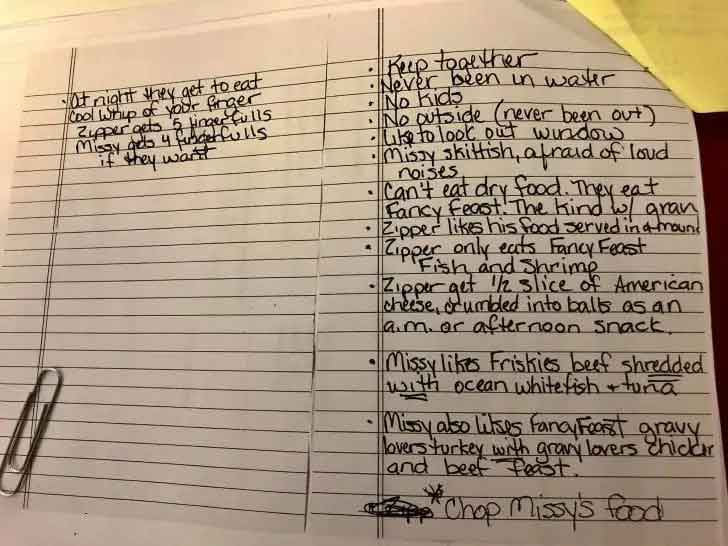 • At night they get to eat
Cool whip of your finger
Zipper gets 5 fingerfulls
Missy gets 4 fingerfulls
if they want
• Keep together
• Never been in water
• No kids
• No outside (never been out)
• Like to look out window
• Missy skittish, afraid of loud
noises
• Can't eat dry food. They eat
Fancy Feast. The kind w/ grav
• Zipper likes his food served in a mound
• Zipper only eats Fancy Feast
Fish and Shrimp
• Zipper get 1/2 slice of American
cheese, crumbled into balls as an
a.m. or afternoon snack.
• Missy likes Friskies beef shredded
with ocean whitefish + tuna
• Missy also likes Fancy Feast gravy
lovers turkey with gravy lovers chicken
and beef feast.
* Chop Missy's food